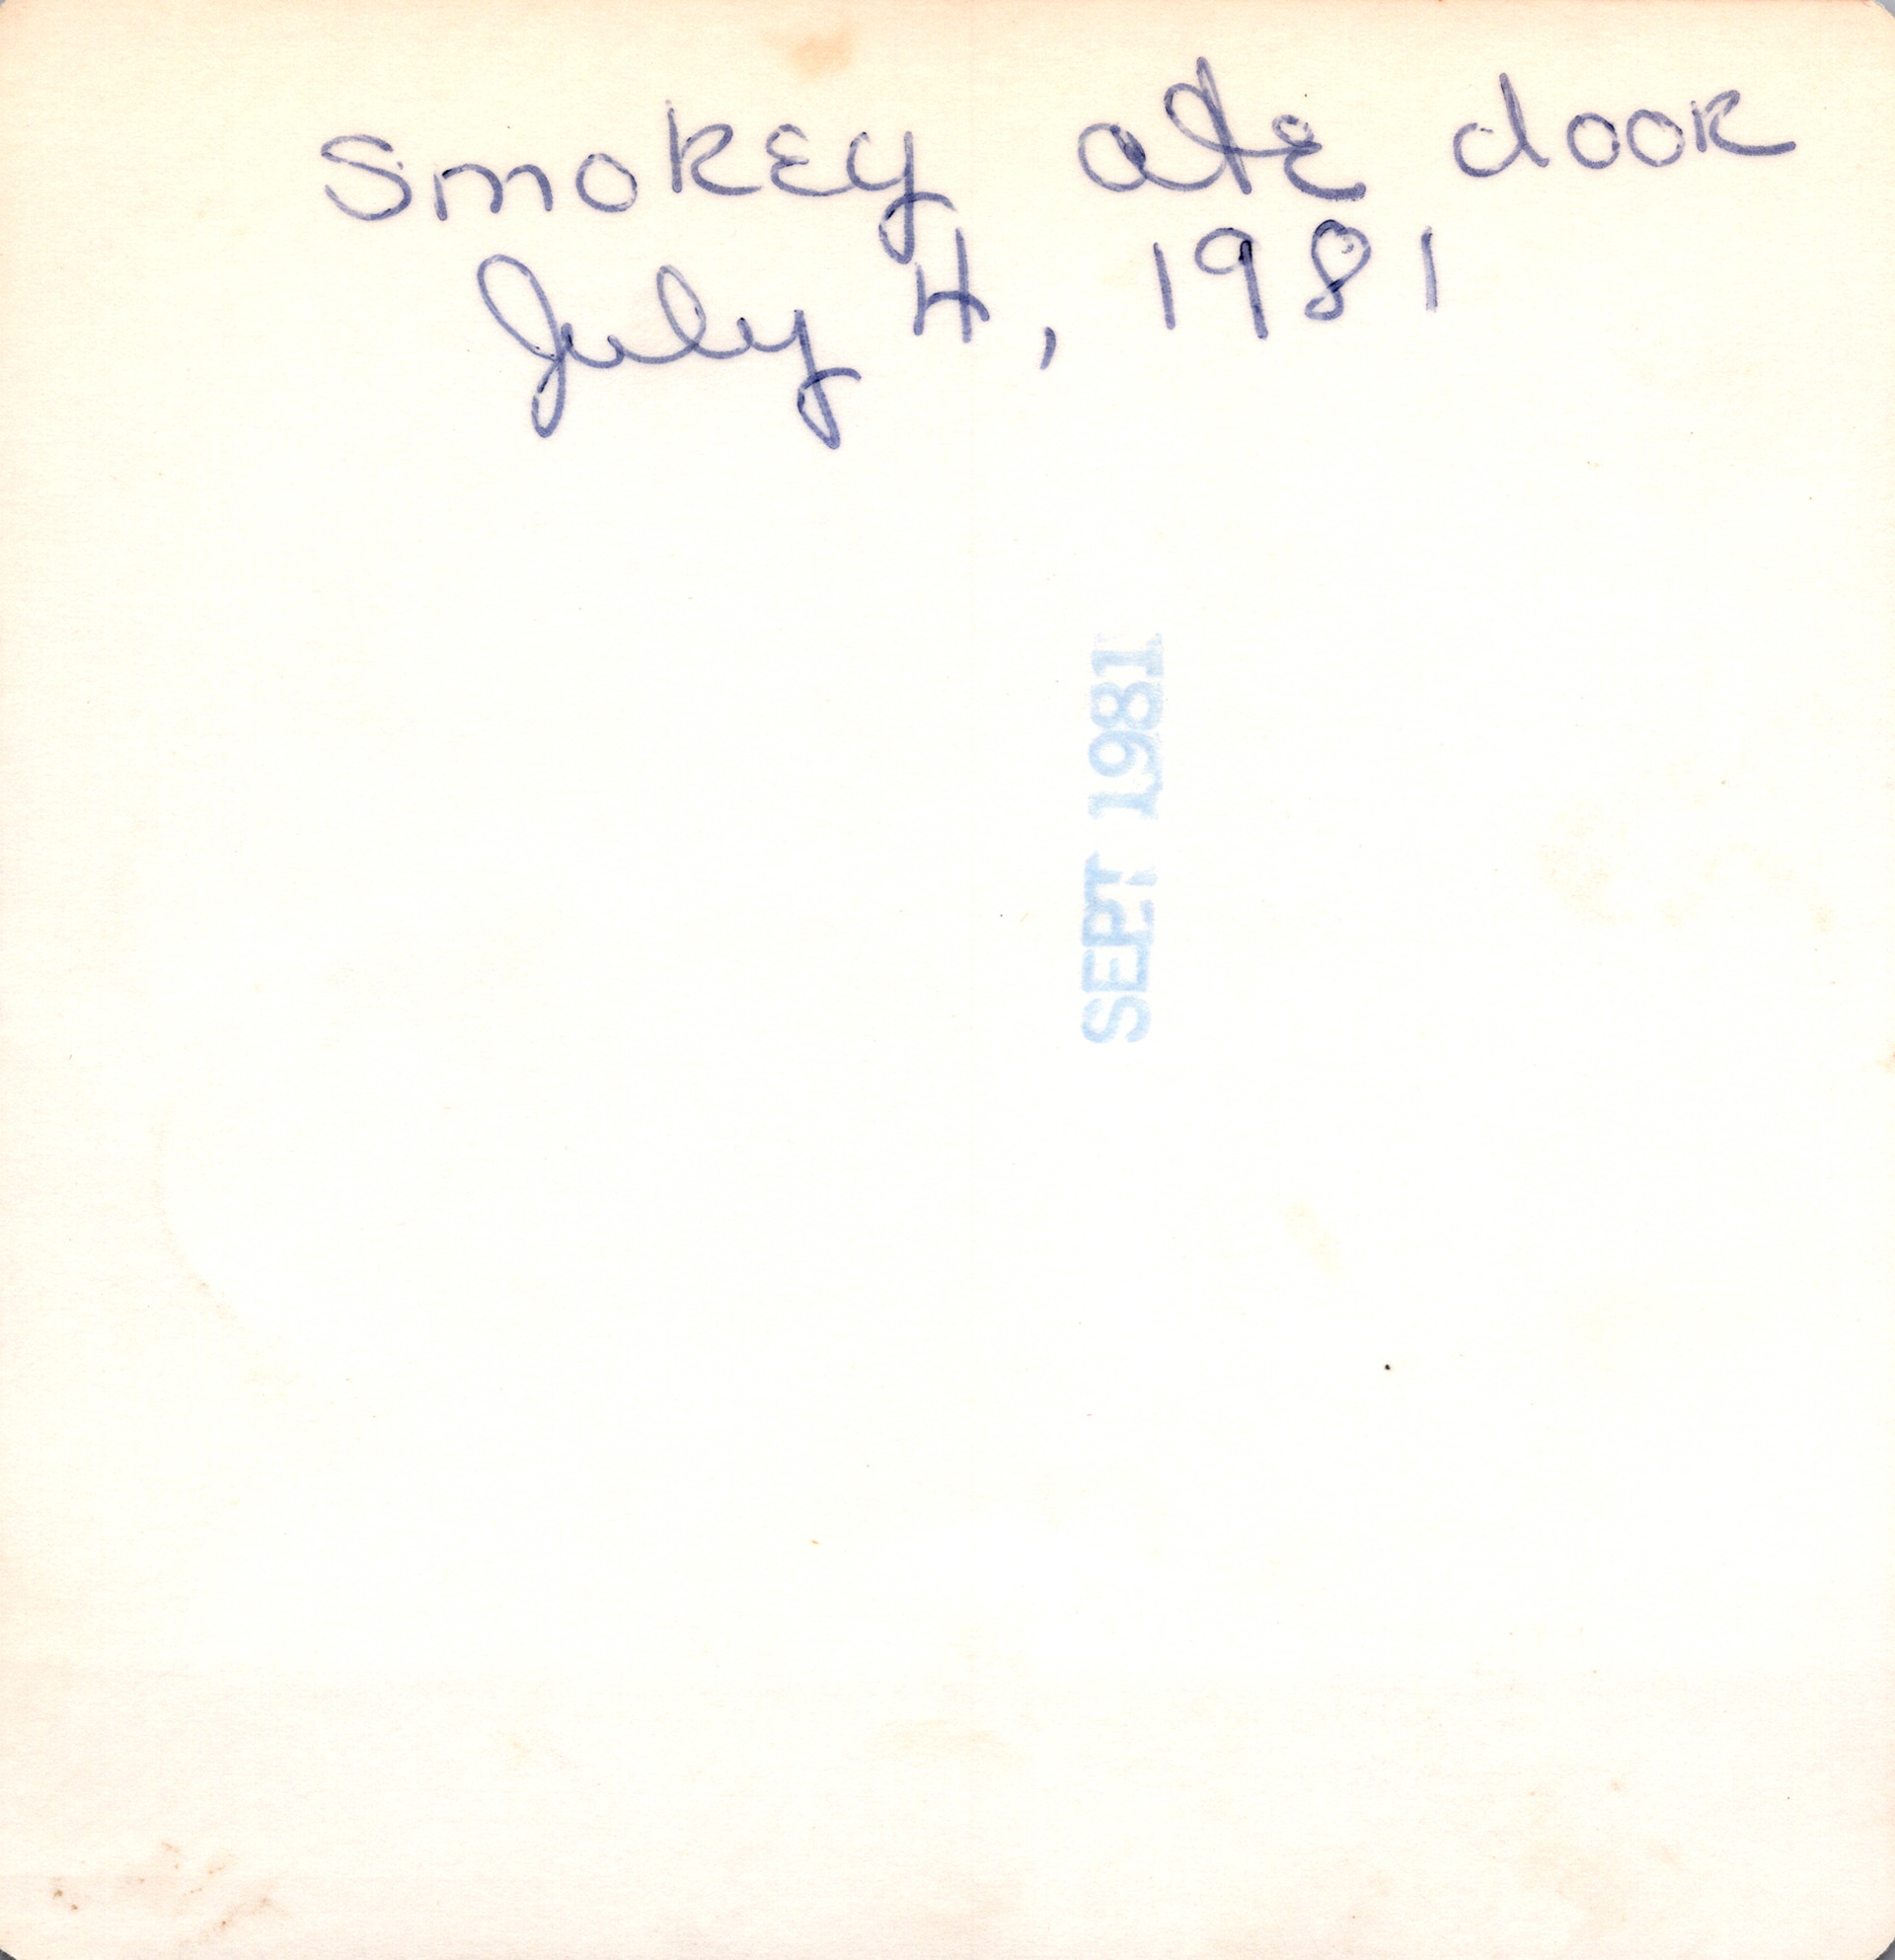 Smokey ate door
July 4, 1981
SEPT 1981